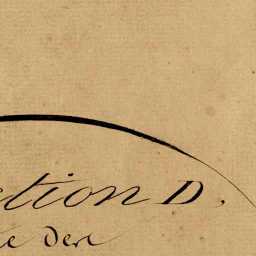 ction D.
e der